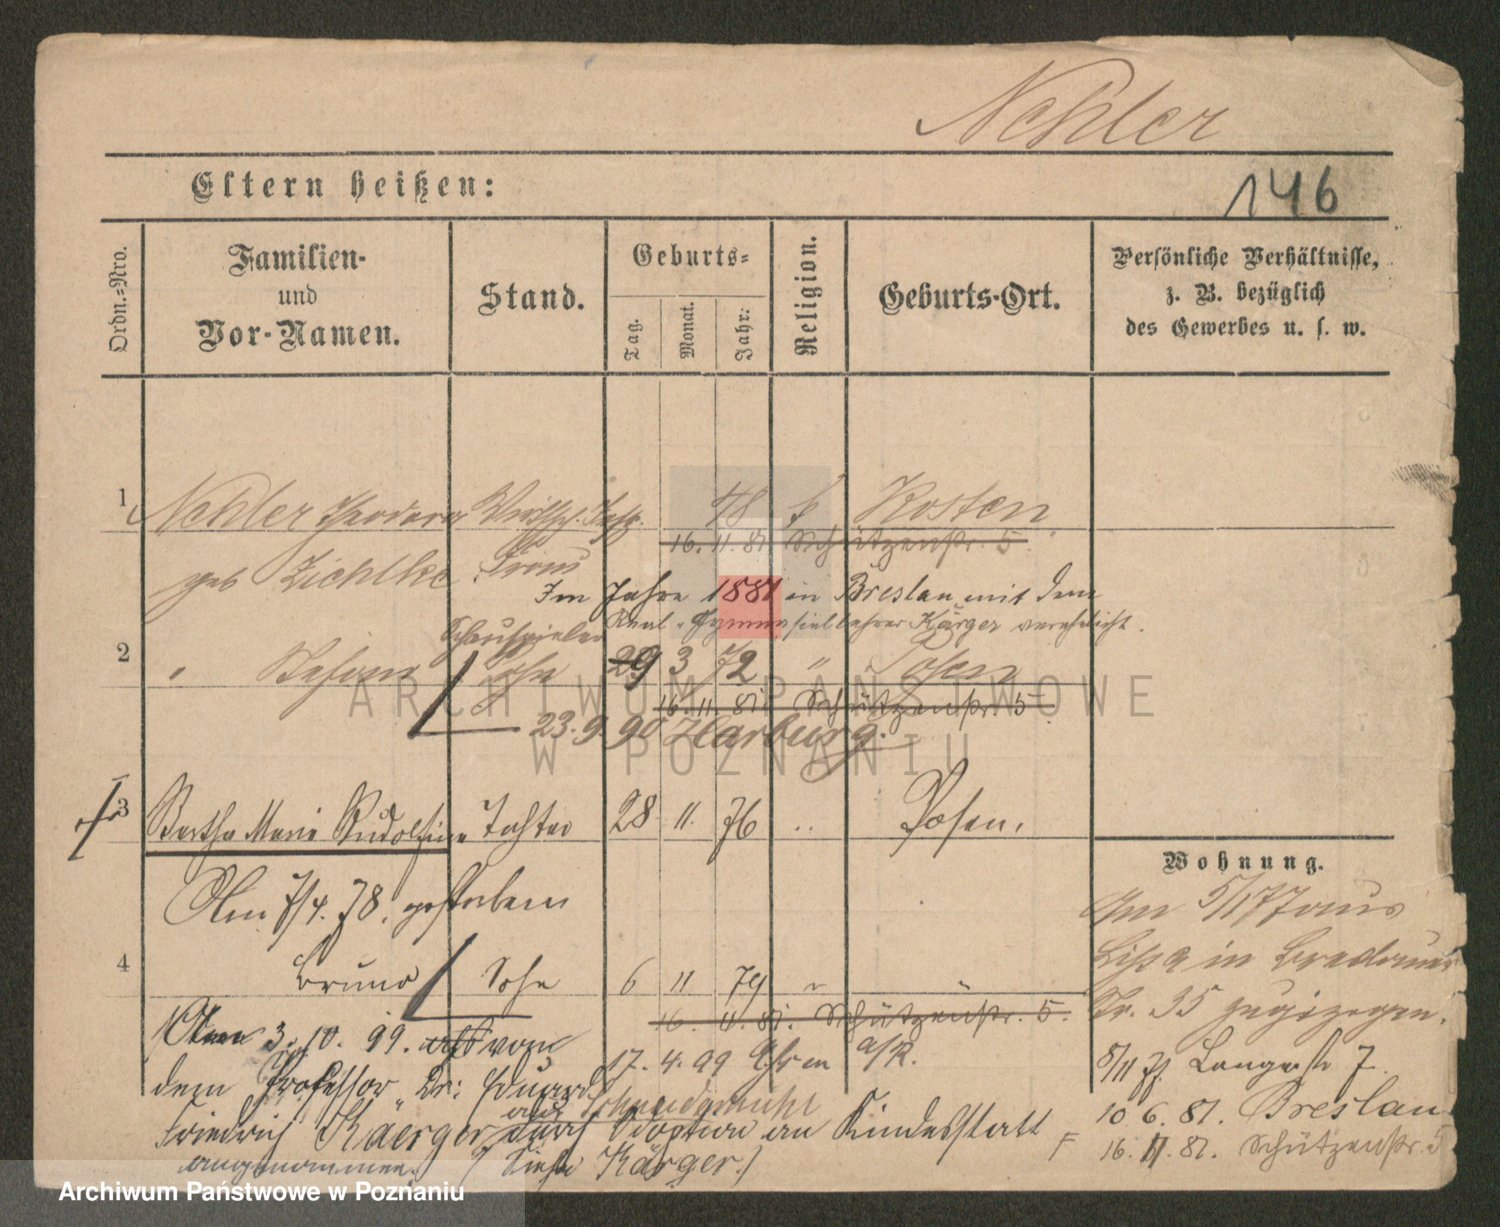 Nehler
Eltern heißen:
146
Ordn.-Nro.
Familien-
und
Vor-Namen.
Stand.
Geburts-
Tag.
Monat.
Jahr:
Religion.
Geburts-Ort.
Persönliche Verhältnisse,
z. B. bezüglich
des Gewerbes u. s. w.
1 Nehler Theodora 48 Kosten
16. 11. 81. Schützenstr. 5.
geb Frau
Im Jahre 1881 in Breslau mit dem
Real-Gymnasiallehrer Kärger verehelicht.
Schauspieler
2 " Sohn 29 3 72 " Posen
16. 11. 81. Schützenstr. 5.
23. 9. 90 Harburg.
3 Bertha Marie Rudolfine Tochter 28 11. 76 " Posen.
Am 7/4. 78. gestorben
Wohnung.
Am 5/1 77 aus
Lissa in Breslauer
Str. 35 zugezogen.
4 Bruno Sohn 6 11 79 " "
16. 11. 81. Schützenstr. 5.
Am 3. 10. 99. von
17. 4. 99
5/11 77 Langestr 7.
dem Professor Dr: Eduard
aus Schneidemühl
10. 6. 81. Breslau
Friedrich Kaerger durch Adoption an Kindesstatt
16. 11. 81. Schützenstr. 5
angenommen. (Siehe Kärger.)
ARCHIWUM PAŃSTWOWE
W POZNANIU
Archiwum Państwowe w Poznaniu